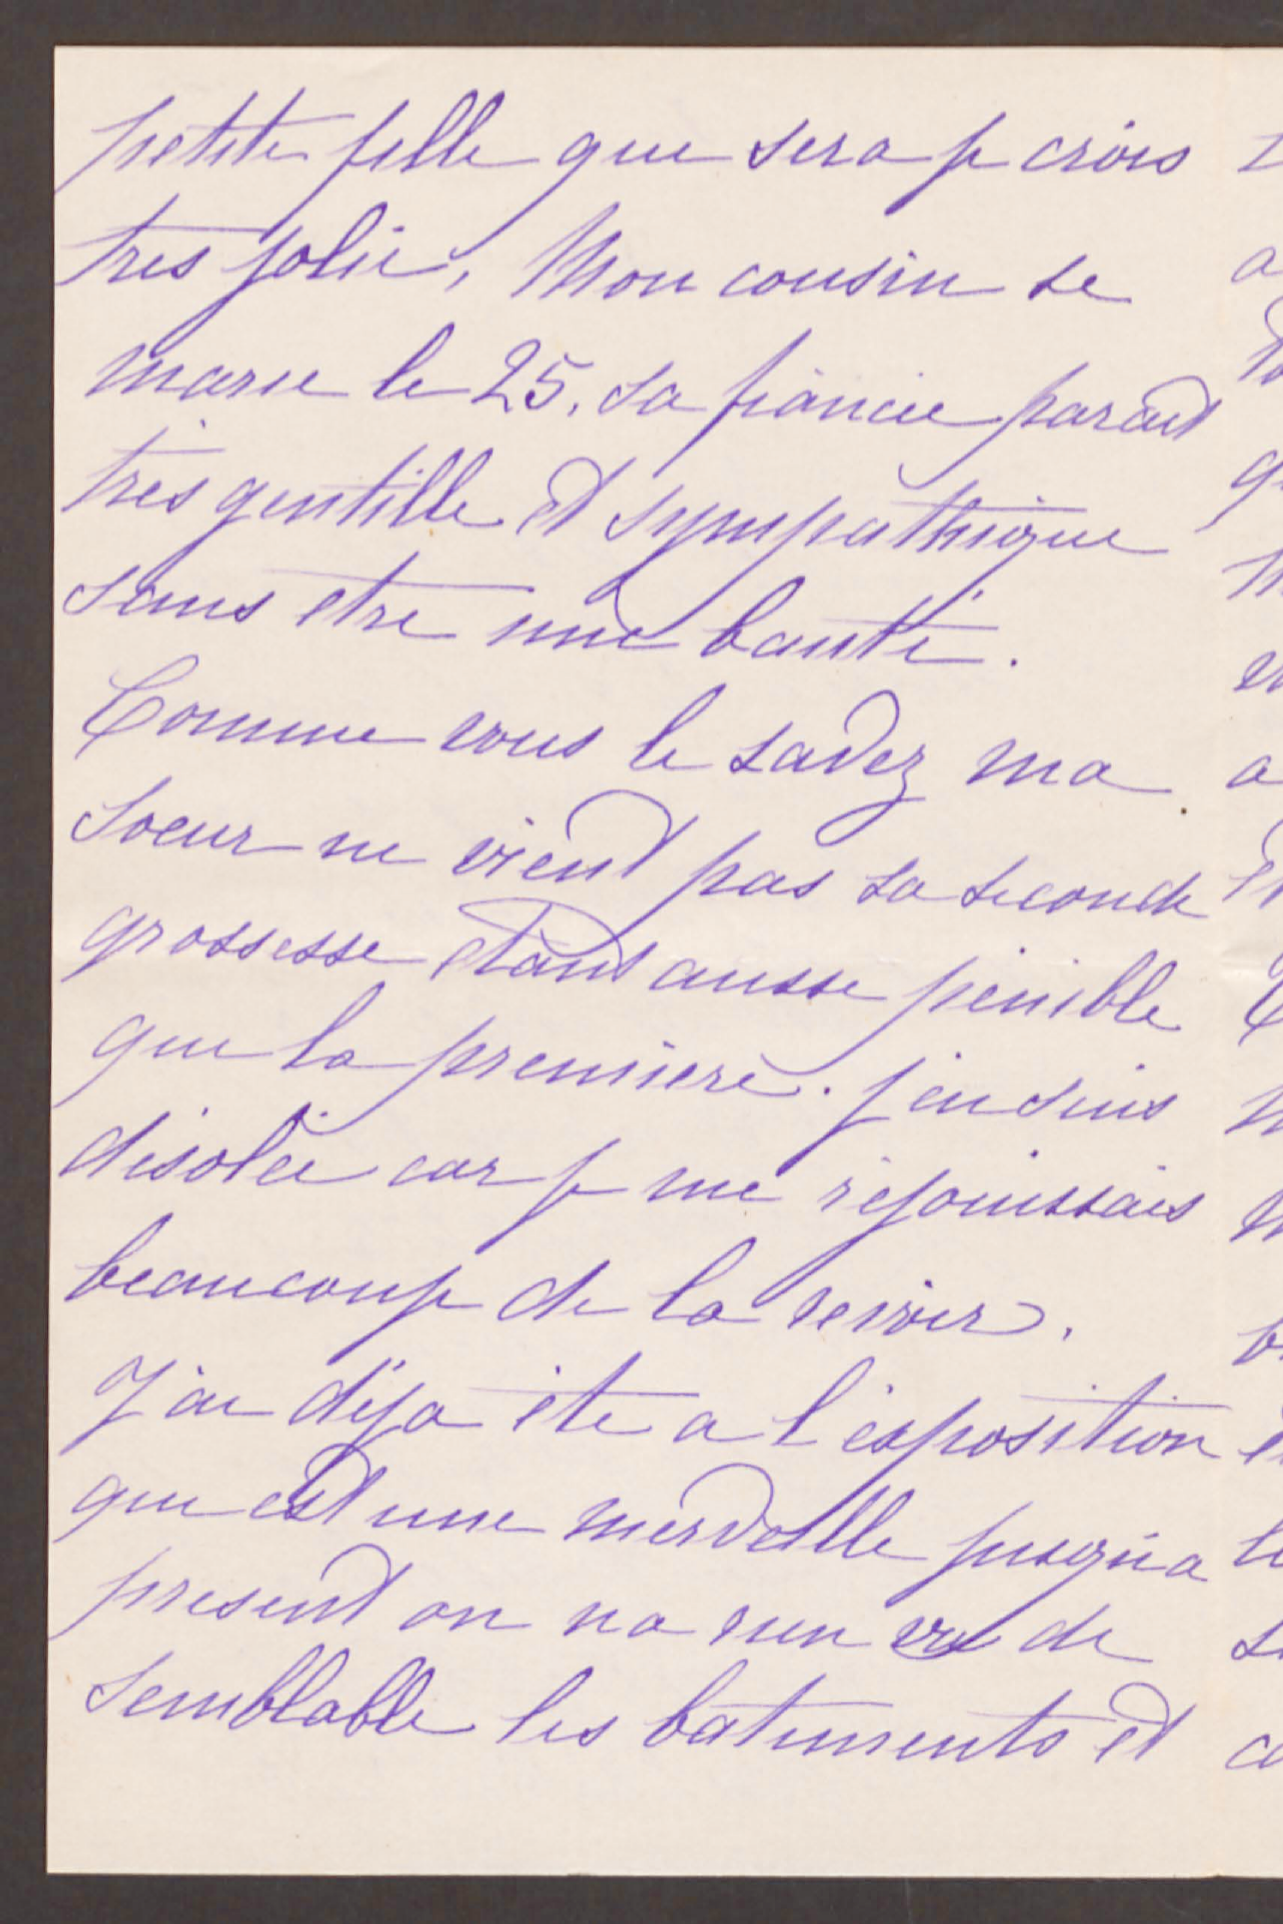 petite fille que sera je crois
tres jolie, Mon cousin se
marie le 25, sa fiancée parait
très gentille et sympathique
sans etre une bauté.
Comme vous le savez ma
soeur ne vient pas sa seconde
grossesse étant ausse pénible
que la premiere. j'en suis
désolée car je me réjouissais
beaucoup de la revoir.
J'ai déja été a l'esposition
qui est une merveille jusqu'a
present on na rien vu de
semblable les batiments et